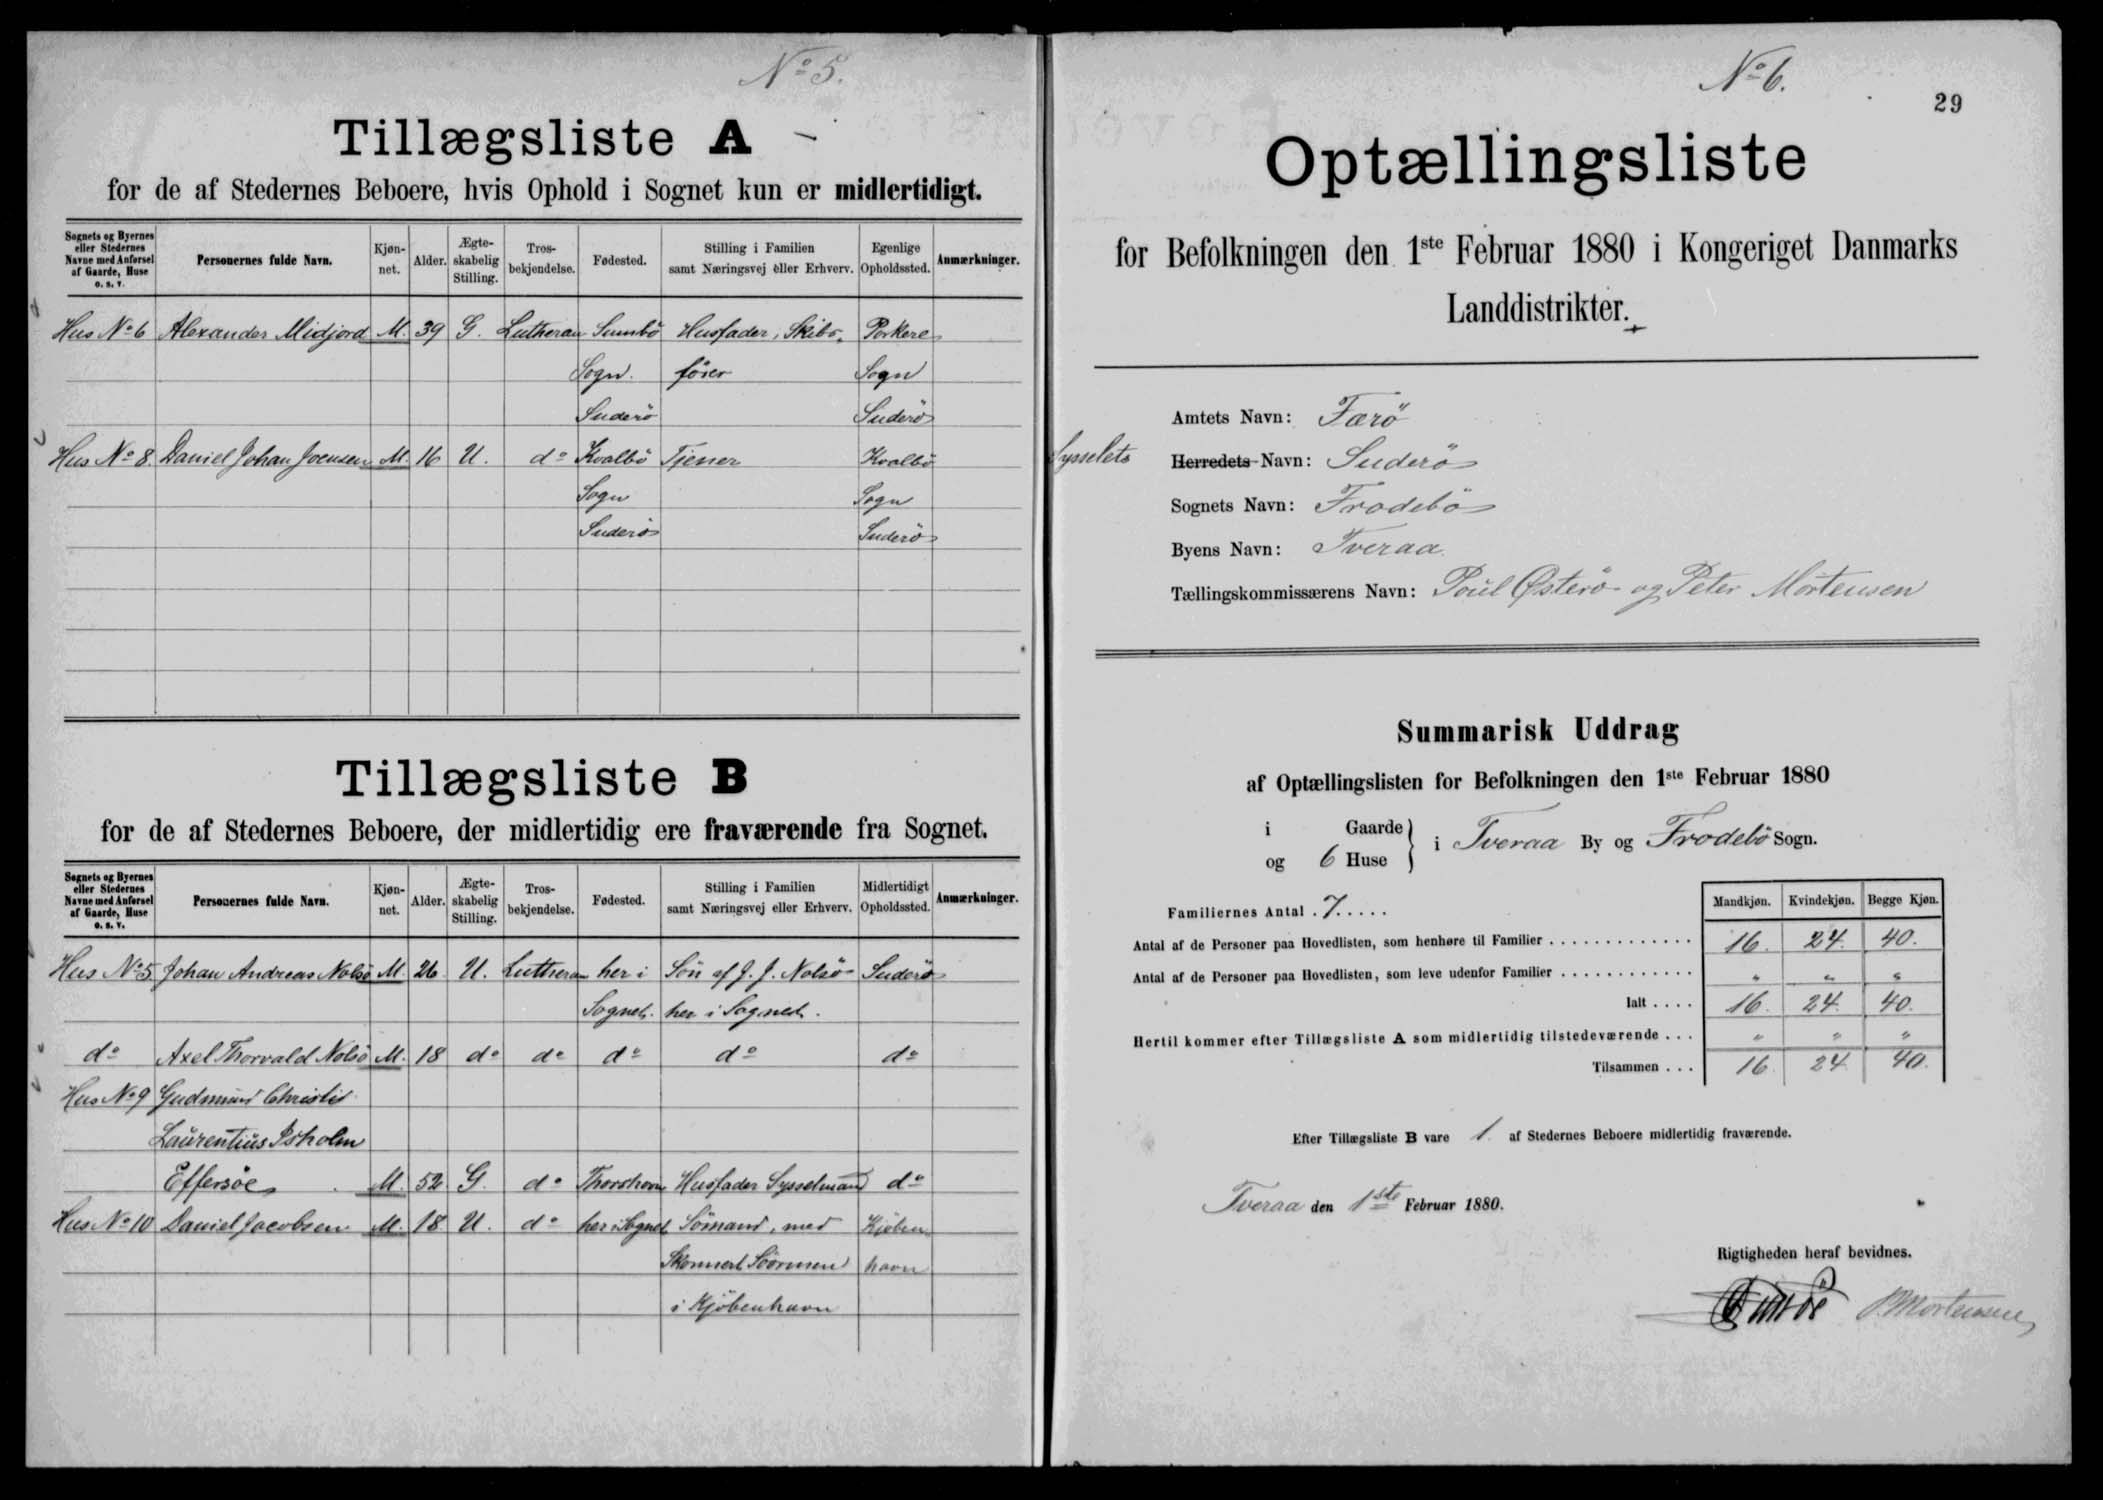 No 5.
Tillægsliste A
for de af Stedernes Beboere, hvis Ophold i Sognet kun er midlertidigt.
Sognets og Byernes eller Stedernes Navne med Anførsel af Gaarde, Huse o. s. v. Personernes fulde Navn. Kjønnet. Alder. Ægteskabelig Stilling. Trosbekjendelse. Fødested. Stilling i Familien samt Næringsvej eller Erhverv. Egenlige Opholdssted. Anmærkninger.
Hus No 6 Alexander Midjord M. 39 G. Lutheran Sumbö Husfader, Skibs- Porkere
Sogn. fører Sogn
Suderö Suderö
Hus No 8. Daniel Johan Joensen M. 16 U. do Kvalbö Tjener Kvalbö
Sogn Sogn
Suderö Suderö
Tillægsliste B
for de af Stedernes Beboere, der midlertidig ere fraværende fra Sognet.
Sognets og Byernes eller Stedernes Navne med Anførsel af Gaarde, Huse o. s. v. Personernes fulde Navn. Kjønnet. Alder. Ægteskabelig Stilling. Trosbekjendelse. Fødested. Stilling i Familien samt Næringsvej eller Erhverv. Midlertidigt Opholdssted. Anmærkninger.
Hus No 5 Johan Andreas Nolsö M. 26 U. Lutheran her i Sön af J. J. Nolsö Suderö
Sognet. her i Sognet.
do Axel Thorvald Nolsö M. 18 do do do do do
Hus No 9 Gudmund Christis
Laurentius Isholm
Effersöe M. 52 G. do Thorshavn Husfader Sysselmand do
Hus No 10 Daniel Jacobsen M. 18 U. do her i Sognet Sömand, med Kjöben
Skonnert havn
i Kjöbenhavn
No 6.
29
Optællingsliste
for Befolkningen den 1ste Februar 1880 i Kongeriget Danmarks
Landdistrikter.
Amtets Navn: Færö
Sysselets Herredets Navn: Suderö
Sognets Navn: Frodebö
Byens Navn: Tveraa
Tællingskommissærens Navn: Poul Østerö og Peter Mortensen
Summarisk Uddrag
af Optællingslisten for Befolkningen den 1ste Februar 1880
i Gaarde
og 6 Huse } i Tveraa By og Frodebö Sogn.
Mandkjøn. Kvindekjøn. Begge Kjøn.
Familiernes Antal . 7. . . . .
Antal af de Personer paa Hovedlisten, som henhøre til Familier . . . . . . . . . . . . . 16. 24. 40.
Antal af de Personer paa Hovedlisten, som leve udenfor Familier . . . . . . . . . . . . " " "
Ialt . . . . 16. 24. 40.
Hertil kommer efter Tillægsliste A som midlertidig tilstedeværende . . . " " "
Tilsammen . . . 16. 24 40.
Efter Tillægsliste B vare 1. af Stedernes Beboere midlertidig fraværende.
Tveraa den 1ste Februar 1880.
Rigtigheden heraf bevidnes.
P Mortensen